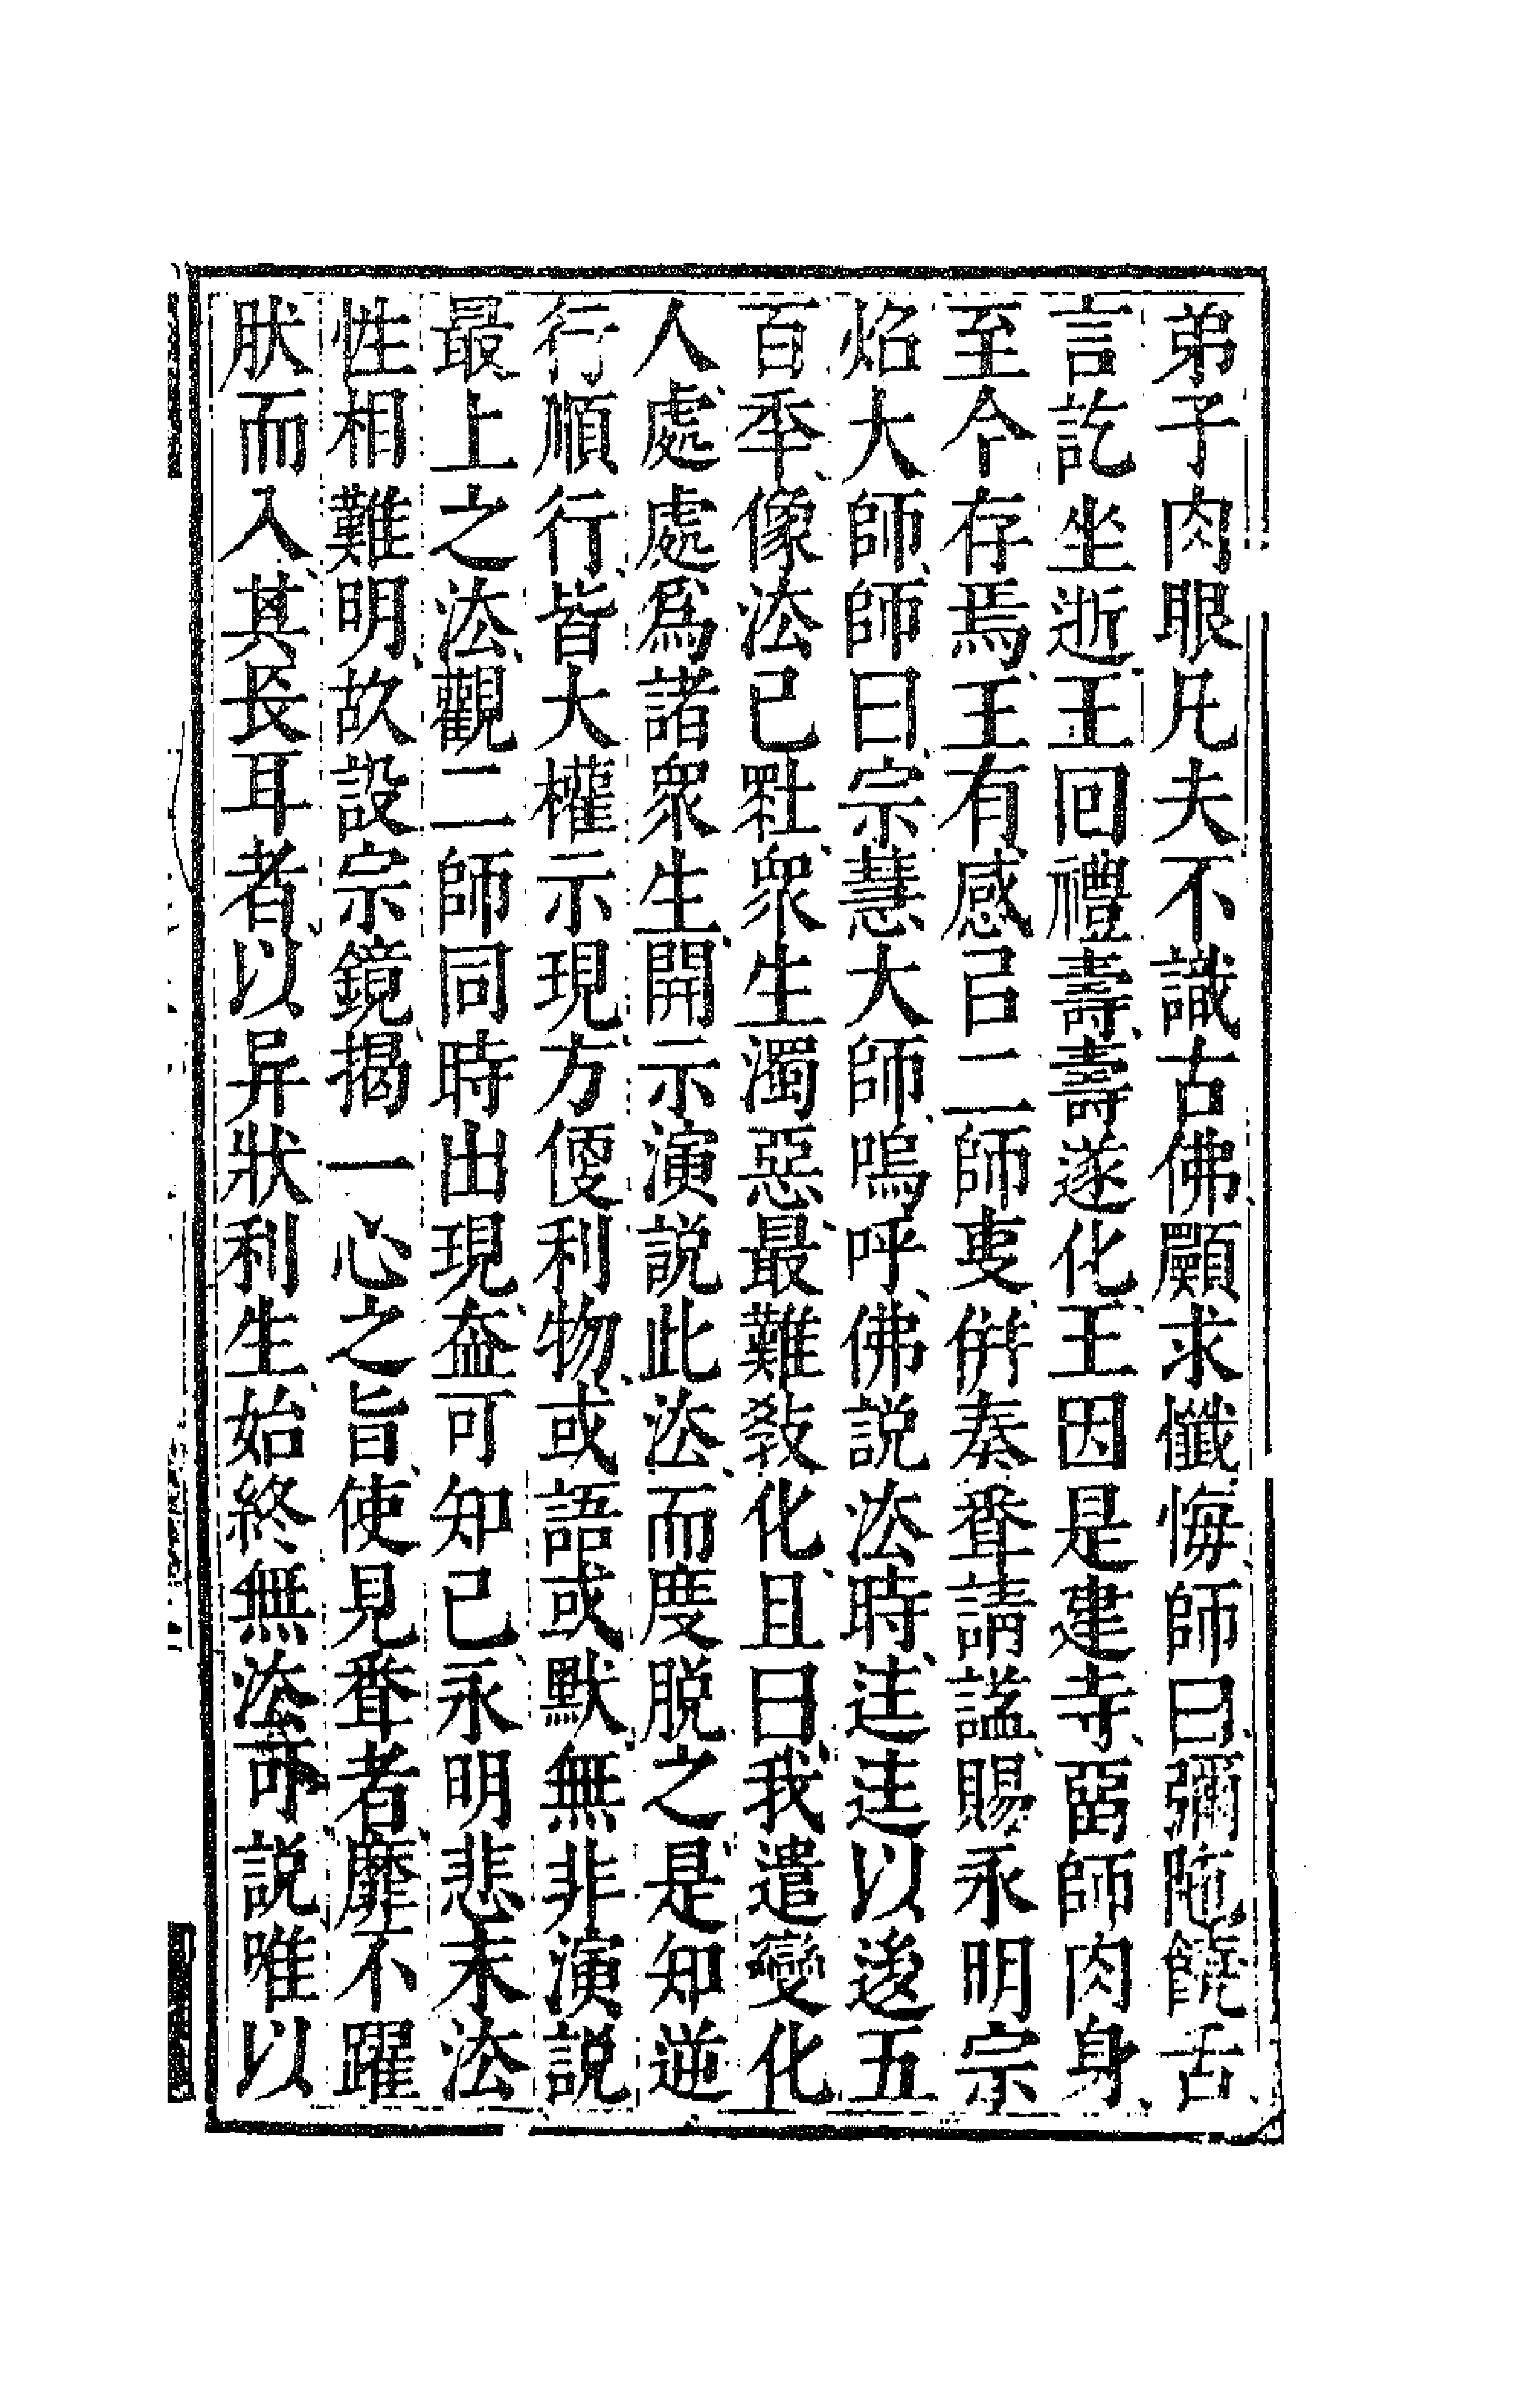 弟子肉眼凡夫不識古佛願求懺悔師曰彌陁饒舌
言訖坐逝王回禮壽壽遂化王因是建寺畱師肉身
至今存焉王有感㠯二師叓併奏聳請謚賜永明宗
焰大師師曰宗慧大師嗚呼佛說法時迋迋以後五
百秊像法已甦衆生濁惡最難敎化且曰我遣變化
人處處爲諸衆生開示演說此法而度脫之是知逆
行順行皆大權示現方便利物或語或默無非演說
最上之法觀二師同時出現葢可知已永明悲末法
性相難明故設宗鏡揭一心之旨使見聳者靡不躍
肰而入其長耳者以异狀利生始終無法可說唯以